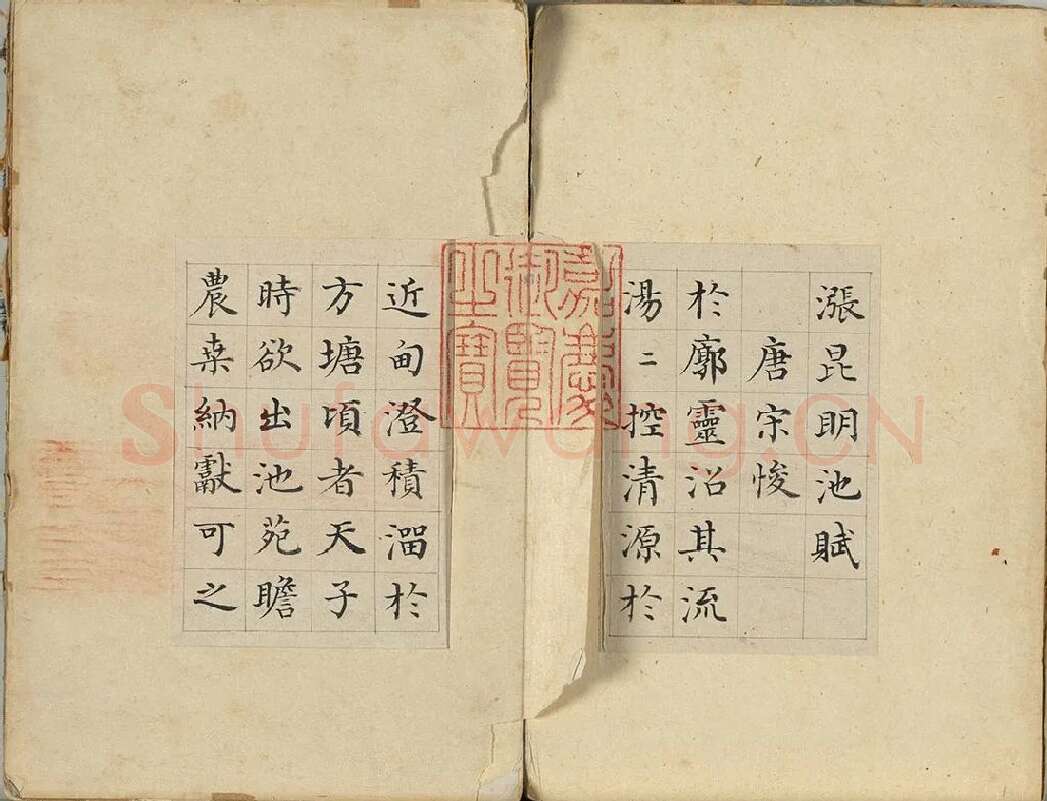 漲昆明池賦
唐宋悛
於廓靈沼其流
湯二控清源於
近甸澄積溜於
方塘頃者天子
時欲出池苑瞻
農桒納獻可之
嘉慶
御覽
之寶
Shufawang.CN